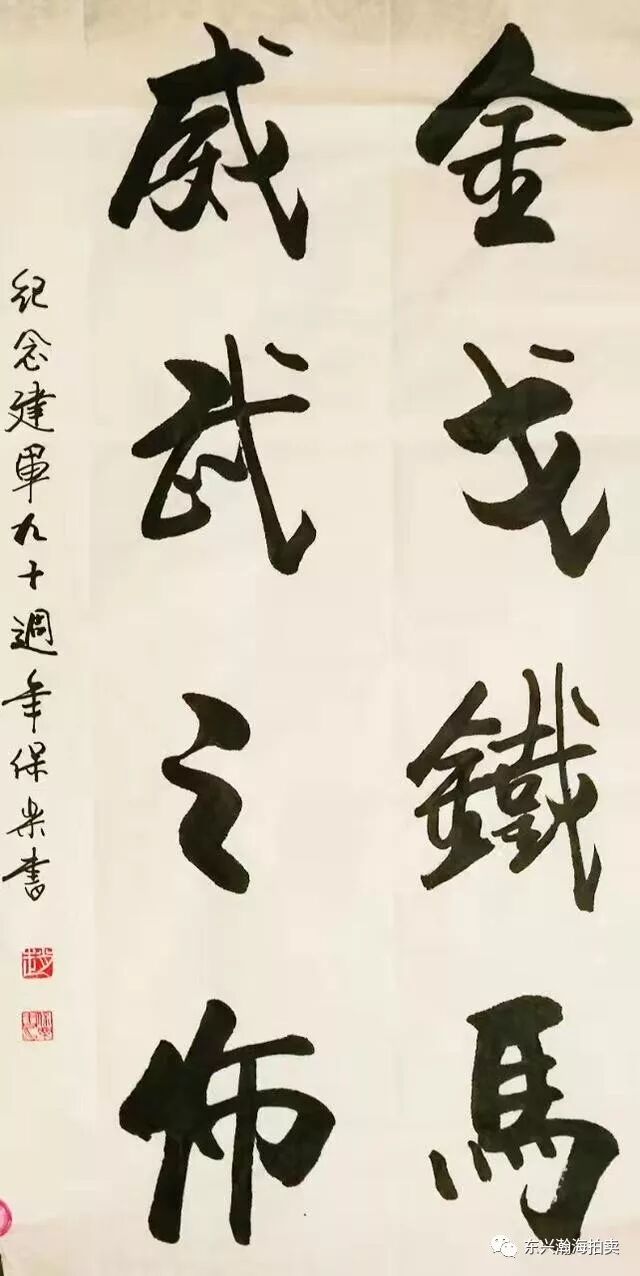 金戈鐵馬
威武之师
纪念建軍九十週年保米書
东兴瀚海拍卖